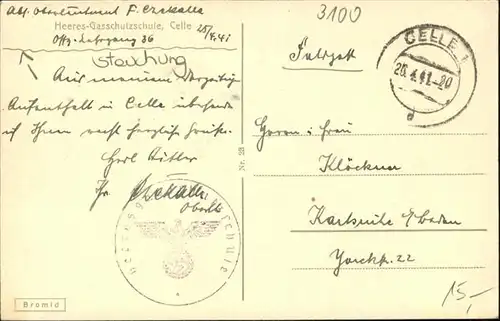 Abs. Oberleutnant F.
Heeres-Gasschutzschule, Celle 25/4.41
Offz. Lehrgang 36
Stauchung
Aus meinem derzeitigen
Aufenthalt in Celle übersende
ich Ihnen recht herzliche Grüße.
Heil Hitler
Ihr
Oberlt
Bromid
Nr. 23
3100
Feldpost
CELLE 1
26.4.41.-20
d
Herrn u. Frau
Klöckner
Karlsruhe i/Baden
Yorckstr. 22
15,-